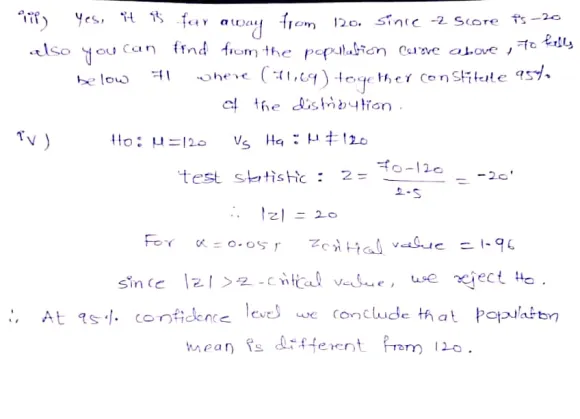 iii) Yes, it is far away from 120. since -z score is -20
also you can find from the population curve above, 70 falls
below 71 where (71,69) together constitute 95%
of the distribution.
iv) H0: μ=120 Vs Ha: μ≠120
test statistic: Z = 70-120 / 2.5 = -20
∴ |z| = 20
For α = 0.05, Zcritical value = 1.96
since |z| > z-critical value, we reject H0.
∴ At 95% confidence level we conclude that population
mean is different from 120.